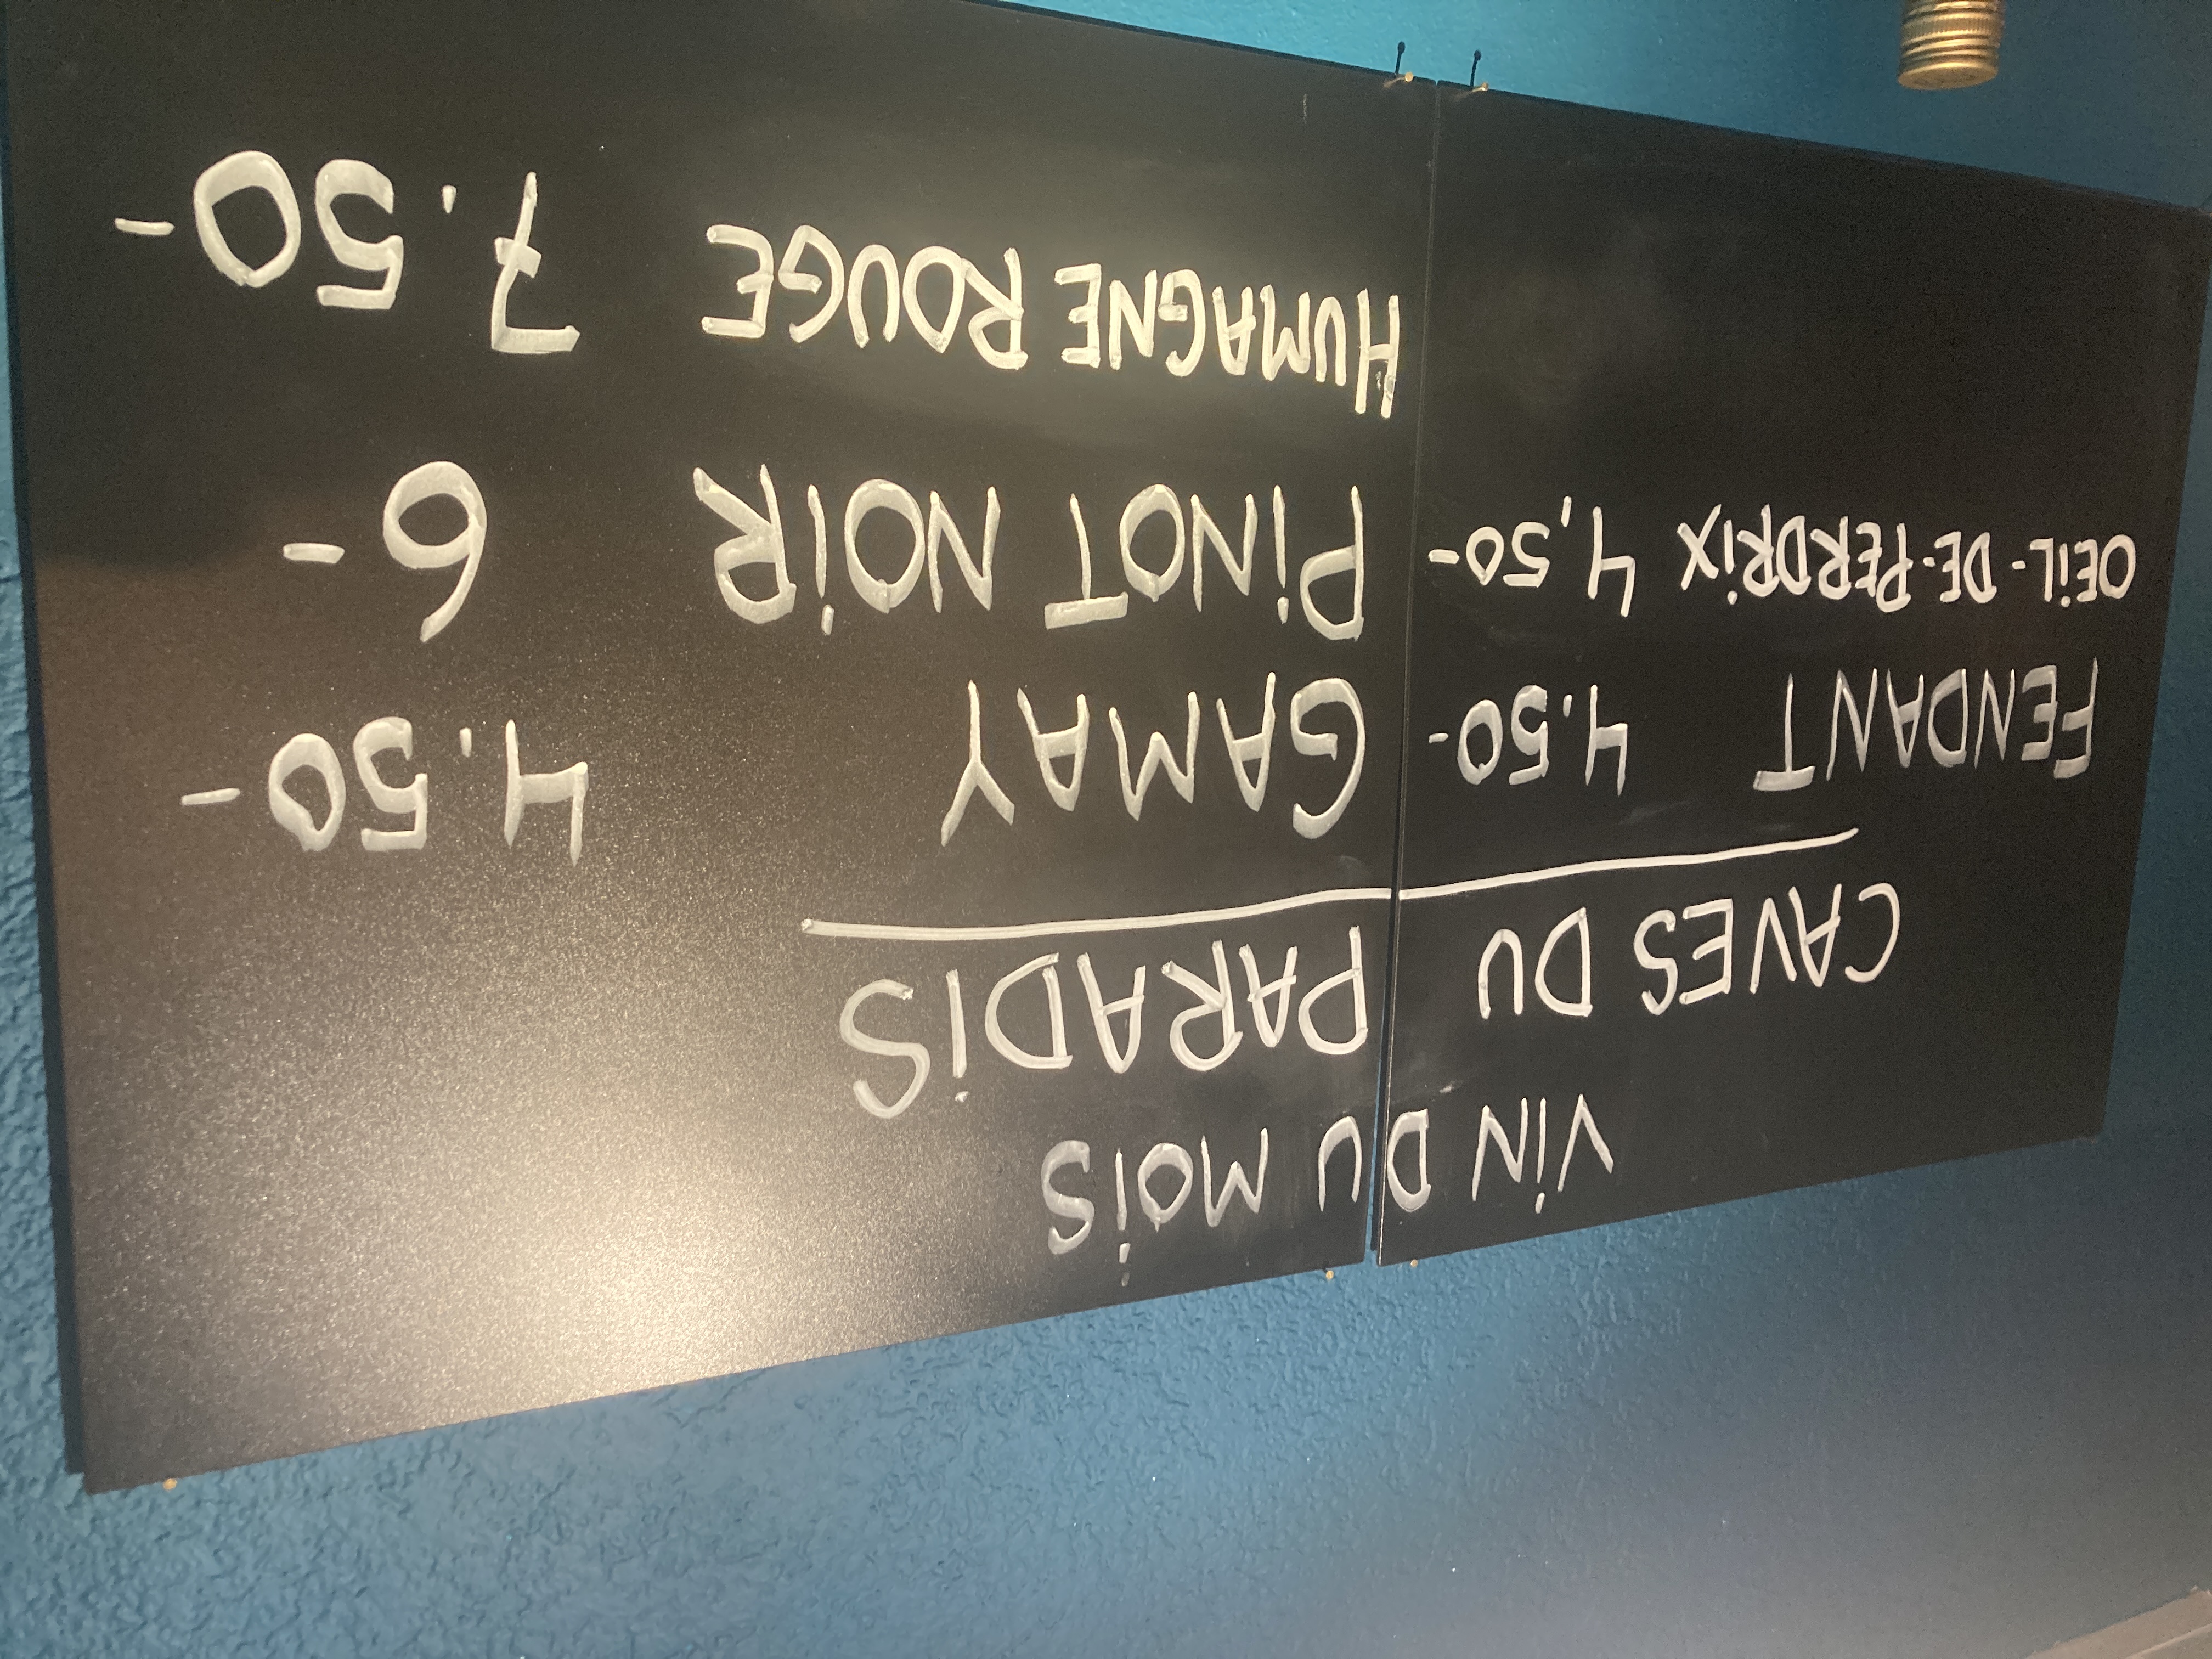 ViN DU MOiS
CAVES DU PARADiS
FENDANT 4.50-
OEiL-DE-PERDRiX 4,50-
GAMAY 4.50-
PiNOT NOiR 6-
HUMAGNE ROUGE 7.50-